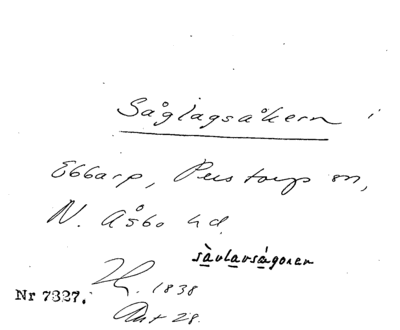 Såglagsåkern i
Ebbarp, Perstorps sn,
N. Åsbo hd.
sàvlavságoren
1838
Nr 7327.
Akt 28.